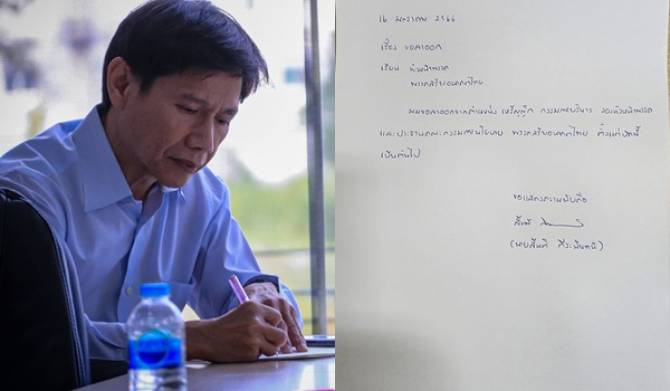 16 มกราคม 2566
เรื่อง ขอลาออก
เรียน หัวหน้าพรรค
พรรคสร้างอนาคตไทย
ผมขอลาออกจากตำแหน่ง เหรัญญิก กรรมการบริหาร รองหัวหน้าพรรค
และประธานคณะกรรมการนโยบาย พรรคสร้างอนาคตไทย ตั้งแต่บัดนี้
เป็นต้นไป
ขอแสดงความนับถือ
สันติ
(นายสันติ กีระนันทน์)